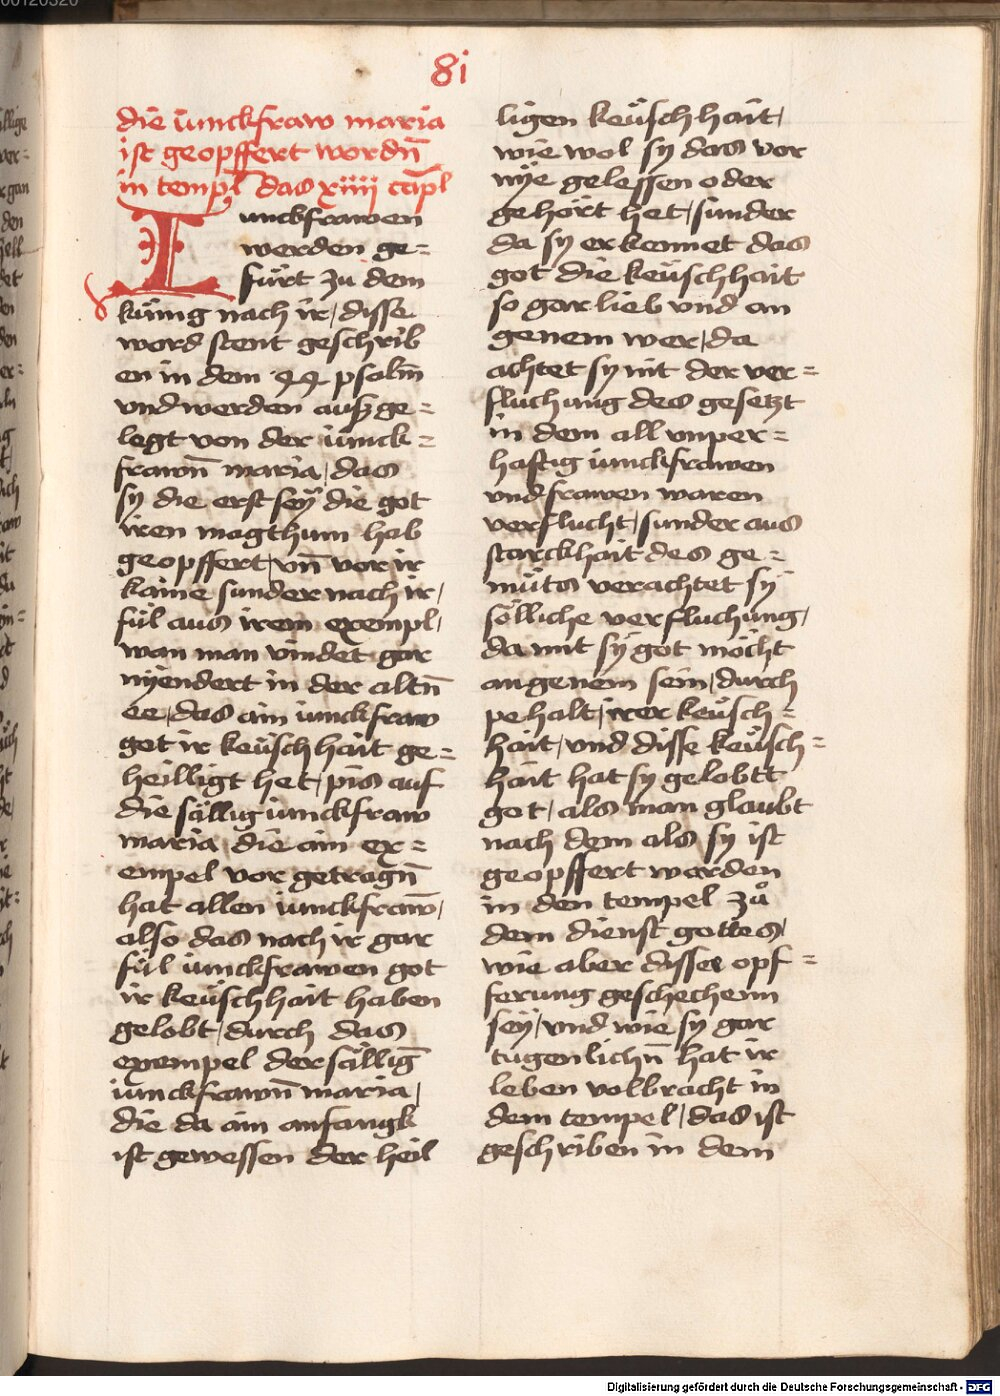 00120320
8i
die iunckfraw maria
ist geopffert wordn̄
in templ das xiiij cap̄l
Iunckfrawen
werden ge=
fürt zu dem
küng nach ir / disse
word stent geschrib
en in dem 44 psalm̄
vnd werden auszge=
legt von der iunck=
frawn̄ maria / das
sy die erst seÿ die got
iren magthum hab
geopffert / vn̄ vor ir
kaine sunder nach ir /
fül aus irem exempl /
wan man vindet gar
nÿendert in der altn̄
ee / das ain iunckfraw
got ir keüschhait ge=
heilligt het / pis auf
die sällig iunckfraw
maria die ain ex=
empel vor getragn̄
hat allen iunckfraw̄ /
also das nach ir gar
fül iunckfrawen got
ir keüschhait haben
gelobt / durch das
exempel der sälliḡ
iunckfrawn̄ maria /
die da ain anfangk
ist gewessen der heil
ligen keüschhait /
wie wol sy das vor
nÿe gelessen oder
gehört het / sunder
da sy erkennet das
got die keüschhait
so gar lieb vnd an
genem wer / da
achtet sy nit der ver=
fluchung des gesetzt
in dem all vnper=
haftig iunckfrawen
vnd frawen waren
verflucht / sunder aus
starckhait des ge=
müts verachtet sy
sölliche verfluchung /
da mit sy got möcht
angenem sein / durch
pehalt / irer keüsch=
hait / vnd disse keüsch=
hait hat sy gelobtt
got / als man glaubt
nach dem als sy ist
geopffert warden
in den tempel zů
dem dienst gottes /
wie aber disses opf=
ferung geschechenn
seÿ / vnd wie sy gar
tugenlichn̄ hat ir
leben volbracht in
dem tempel / das ist
geschriben in dem
Digitalisierung gefördert durch die Deutsche Forschungsgemeinschaft - DFG